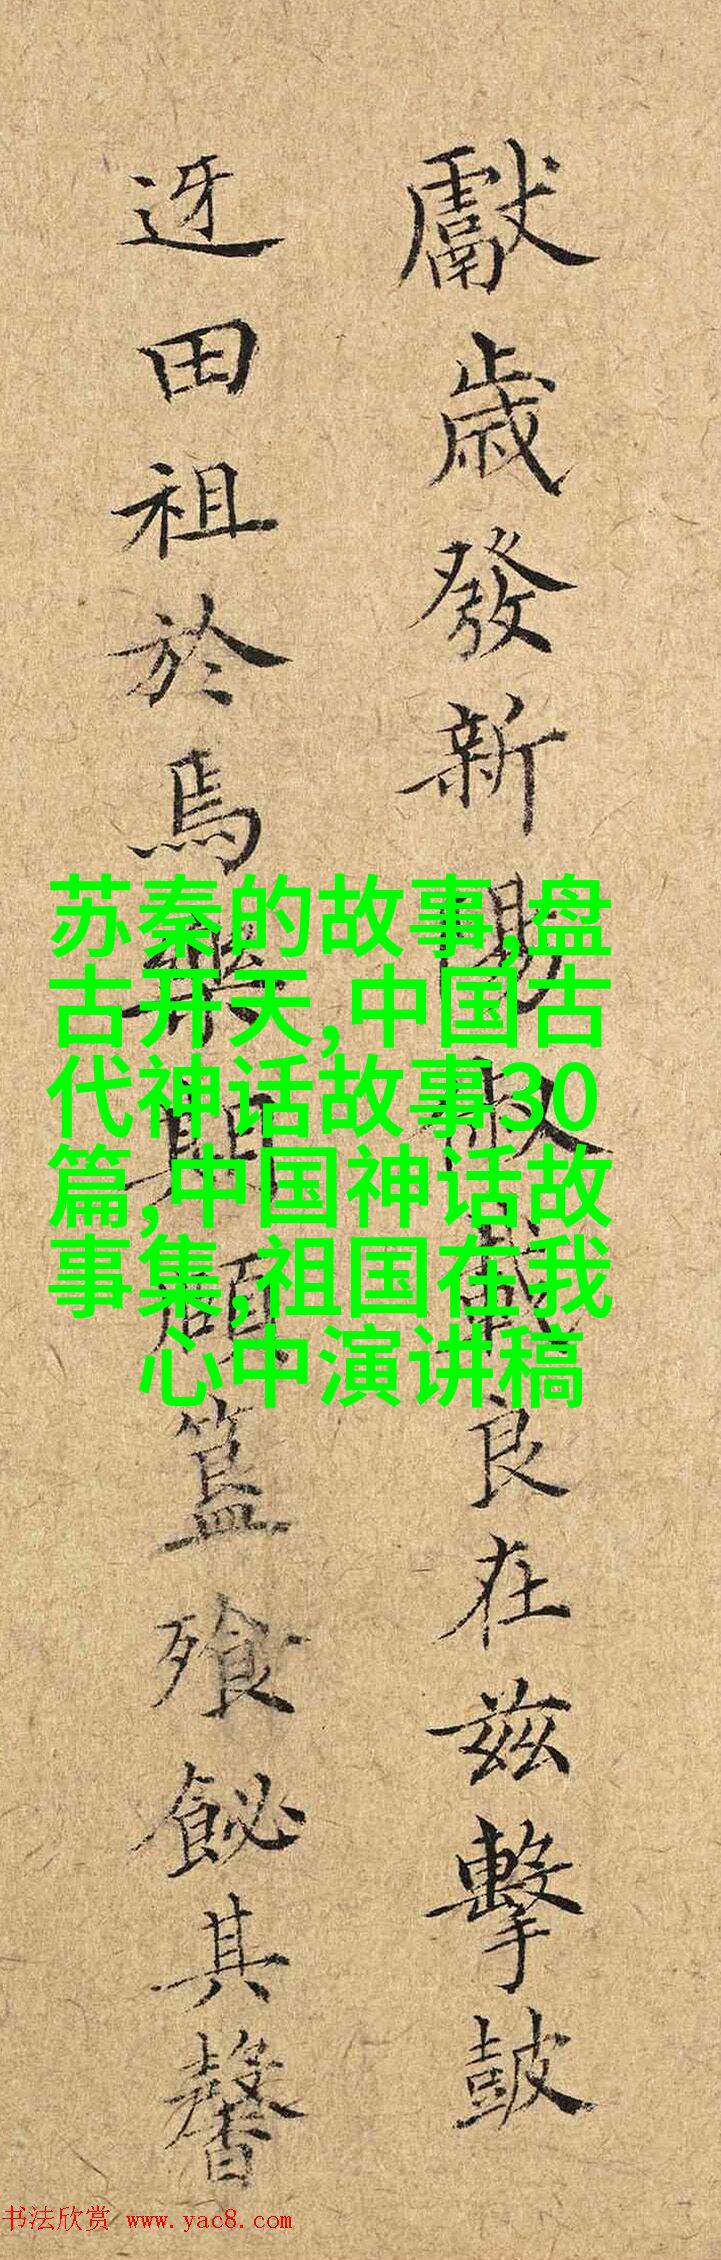 獻歲發新陽俶載良在兹擊皷
迓田祖於焉樂期頤簋飱飶其馨
苏秦的故事,盘
古开天,中国古
代神话故事30
篇,中国神话故
事集,祖国在我
心中演讲稿
书法欣赏 www.yac8.com